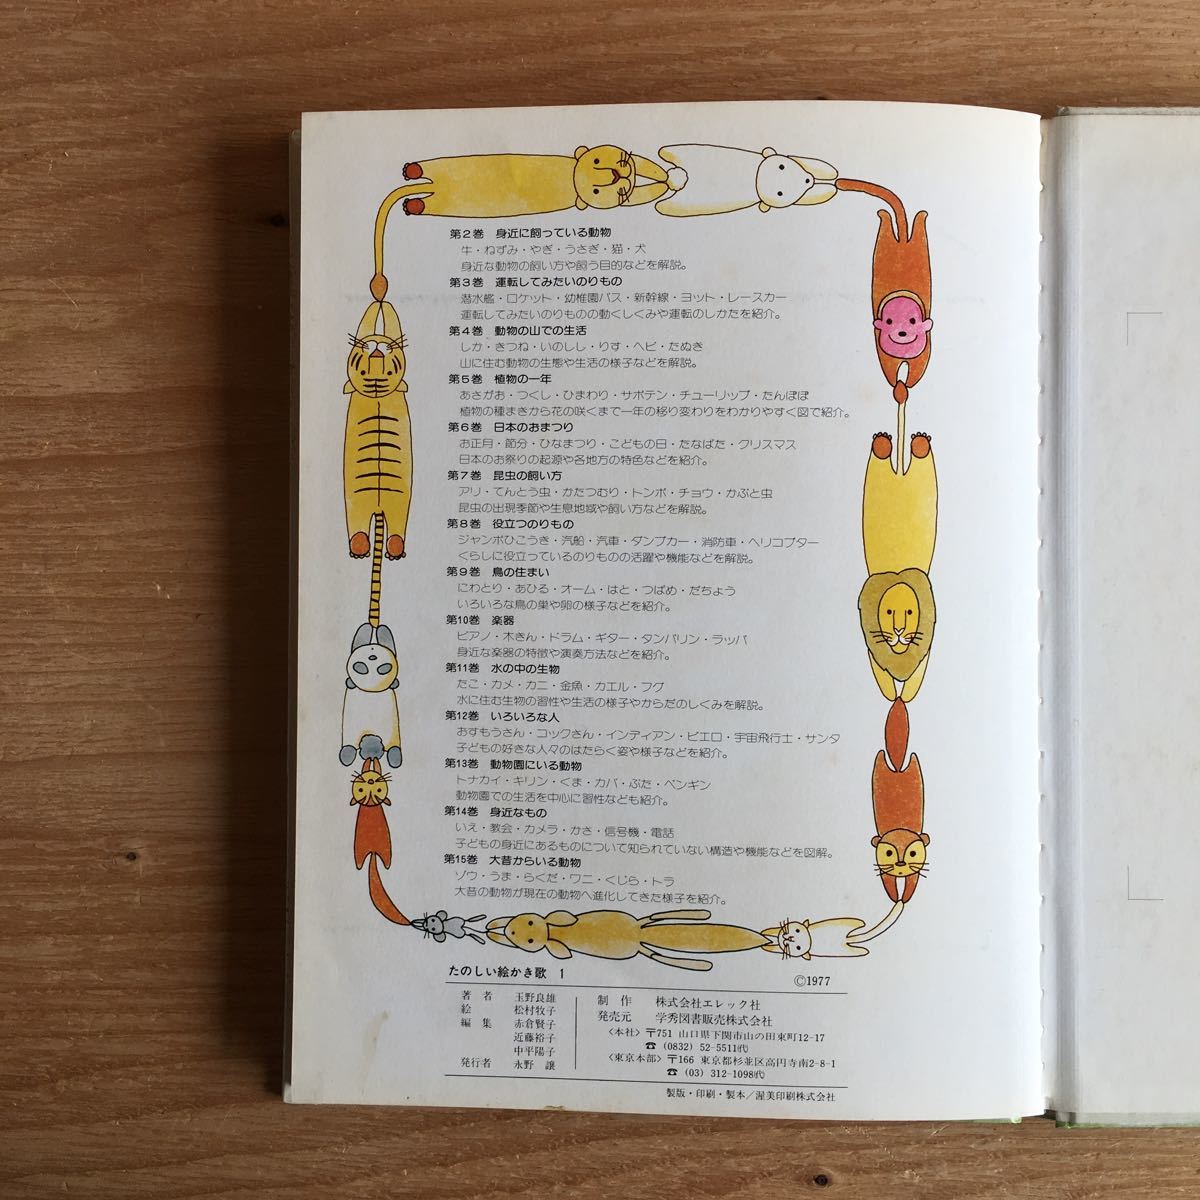 第2巻 身近に飼っている動物
牛・ねずみ・やぎ・うさぎ・猫・犬
身近な動物の飼い方や飼う目的などを解説。
第3巻 運転してみたいのりもの
潜水艦・ロケット・幼稚園バス・新幹線・ヨット・レースカー
運転してみたいのりものの動くしくみや運転のしかたを紹介。
第4巻 動物の山での生活
しか・きつね・いのしし・りす・ヘビ・たぬき
山に住む動物の生態や生活の様子などを解説。
第5巻 植物の一年
あさがお・つくし・ひまわり・サボテン・チューリップ・たんぽぽ
植物の種まきから花の咲くまで一年の移り変わりをわかりやすく図で紹介。
第6巻 日本のおまつり
お正月・節分・ひなまつり・こどもの日・たなばた・クリスマス
日本のお祭りの起源や各地方の特色などを紹介。
第7巻 昆虫の飼い方
アリ・てんとう虫・かたつむり・トンボ・チョウ・かぶと虫
昆虫の出現季節や生息地域や飼い方などを解説。
第8巻 役立つのりもの
ジャンボひこうき・汽船・汽車・ダンプカー・消防車・ヘリコプター
くらしに役立っているのりものの活躍や機能などを解説。
第9巻 鳥の住まい
にわとり・あひる・オーム・はと・つばめ・だちょう
いろいろな鳥の巣や卵の様子などを紹介。
第10巻 楽器
ピアノ・木きん・ドラム・ギター・タンバリン・ラッパ
身近な楽器の特徴や演奏方法などを紹介。
第11巻 水の中の生物
たこ・カメ・カニ・金魚・カエル・フグ
水に住む生物の習性や生活の様子やからだのしくみを解説。
第12巻 いろいろな人
おすもうさん・コックさん・インディアン・ピエロ・宇宙飛行士・サンタ
子どもの好きな人々のはたらく姿や様子などを紹介。
第13巻 動物園にいる動物
トナカイ・キリン・くま・カバ・ぶた・ペンギン
動物園での生活を中心に習性なども紹介。
第14巻 身近なもの
いえ・教会・カメラ・かさ・信号機・電話
子どもの身近にあるものについて知られていない構造や機能などを図解。
第15巻 大昔からいる動物
ゾウ・うま・らくだ・ワニ・くじら・トラ
大昔の動物が現在の動物へ進化してきた様子を紹介。
たのしい絵かき歌 1
©1977
著者 玉野良雄
絵 松村牧子
編集 赤倉賢子
近藤裕子
中平陽子
発行者 永野 譲
制作 株式会社エレック社
発売元 学秀図書販売株式会社
〈本社〉〒751 山口県下関市山の田東町12-17
☎ (0832) 52-5511㈹
〈東京本部〉〒166 東京都杉並区高円寺南2-8-1
☎ (03) 312-1098㈹
製版・印刷・製本/渥美印刷株式会社